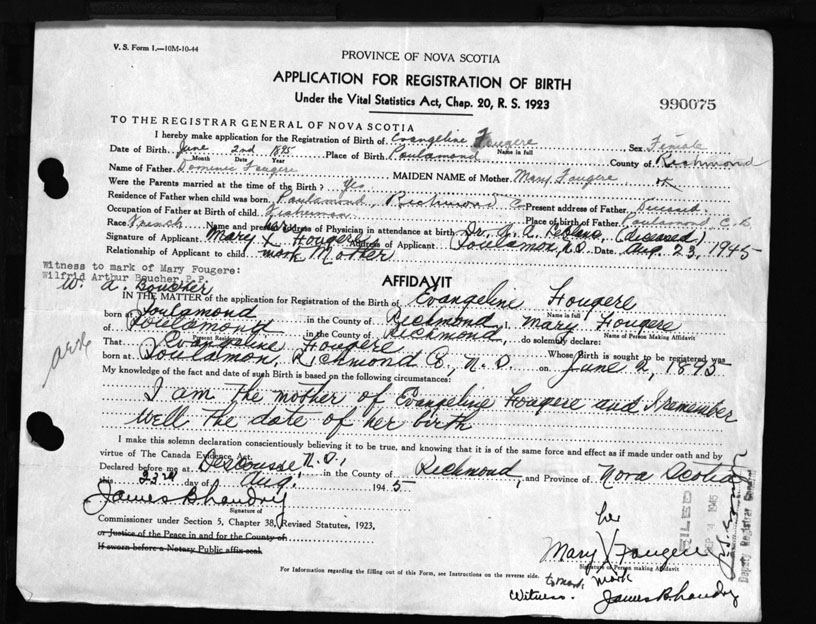 V. S. Form 1.—10M-10-44
PROVINCE OF NOVA SCOTIA
APPLICATION FOR REGISTRATION OF BIRTH
Under the Vital Statistics Act, Chap. 20, R. S. 1923
990075
TO THE REGISTRAR GENERAL OF NOVA SCOTIA
I hereby make application for the Registration of Birth of Evangeline Fougere Sex Female
Name in full
Date of Birth June 2nd 1895 Place of Birth Poulamond County of Richmond
Month Date Year
Name of Father Dominic Fougere MAIDEN NAME of Mother Mary Fougere
Were the Parents married at the time of the Birth? Yes
Residence of Father when child was born Poulamond, Richmond Co Present address of Father Deceased
Occupation of Father at Birth of child Fisherman Place of birth of Father Poulamond C.B.
Race French Name and present address of Physician in attendance at birth Dr. A. LeBlanc, (deceased)
Signature of Applicant Mary X Fougere Address of Applicant Poulamon, N.S. Date Aug. 23, 1945
Relationship of Applicant to child mark Mother
Witness to mark of Mary Fougere:
Wilfrid Arthur Boucher, P.P.
W. A. Boucher
AFFIDAVIT
IN THE MATTER of the application for Registration of the Birth of Evangeline Fougere
Name in full
born at Poulamond in the County of Richmond, I, Mary Fougere
Name of Person Making Affidavit
of Poulamond in the County of Richmond, do solemnly declare:
Present Residence
That Evangeline Fougere Whose Birth is sought to be registered was
born at Poulamon, Richmond Co., N.S. on June 2, 1895
My knowledge of the fact and date of such Birth is based on the following circumstances:
I am the mother of Evangeline Fougere and I remember
well the date of her birth
I make this solemn declaration conscientiously believing it to be true, and knowing that it is of the same force and effect as if made under oath and by
virtue of The Canada Evidence Act.
Declared before me at Descousse N.S., in the County of Richmond, and Province of Nova Scotia
this 23rd day of Aug. 1945
James B Landry
Signature of
Commissioner under Section 5, Chapter 38, Revised Statutes, 1923,
or Justice of the Peace in and for the County of
If sworn before a Notary Public affix seal
her
Mary X Fougere
Signature of Person making Affidavit
to mark mark
Witness. James B. Landry
For Information regarding the filling out of this Form, see Instructions on the reverse side.
FILED
SEP 4 1945
Deputy Registrar General